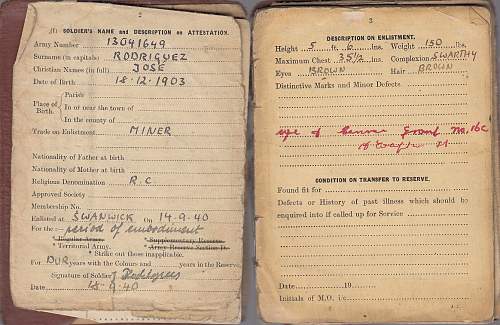 2
(I) SOLDIER'S NAME and DESCRIPTION on ATTESTATION.
Army Number 13041649
Surname (in capitals) RODRIGUEZ
Christian Names (in full) JOSE
Date of Birth 18.12.1903
Place of Birth
Parish
In or near the town of
In the county of
Trade on Enlistment MINER
Nationality of Father at birth
Nationality of Mother at birth
Religious Denomination R.C.
Approved Society
Membership No.
Enlisted at SWANWICK On 14.9.40
For the :- period of embodiment
* Regular Army. * Supplementary Reserve.
* Territorial Army. * Army Reserve Section D.
* Strike out those inapplicable.
For DUR years with the Colours and years in the Reserve.
Signature of Soldier
Date 18.9.40
3
DESCRIPTION ON ENLISTMENT.
Height 5 ft. 6 ins. Weight 150 lbs.
Maximum Chest 35½ ins. Complexion SWARTHY
Eyes BROWN Hair BROWN
Distinctive Marks and Minor Defects
No. 16c
CONDITION ON TRANSFER TO RESERVE.
Found fit for
Defects or History of past illness which should be
enquired into if called up for Service
Date 19
Initials of M.O. i/c